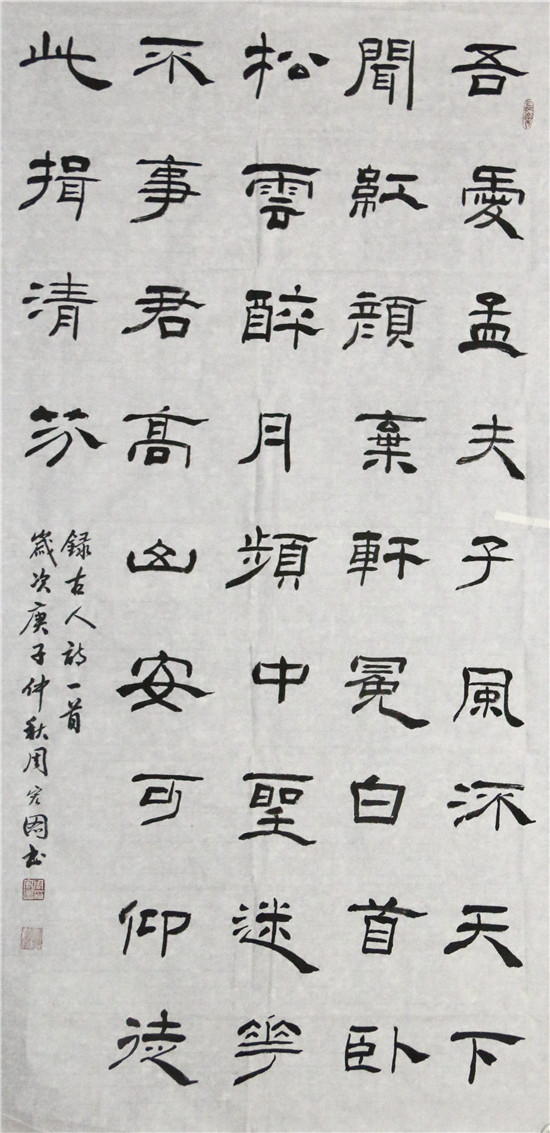 吾愛孟夫子風流天下
聞紅顔棄軒冕白首卧
松雲醉月頻中聖迷花
不事君高山安可仰徒
此揖清芬
録古人詩一首
歲次庚子仲秋周宏图书